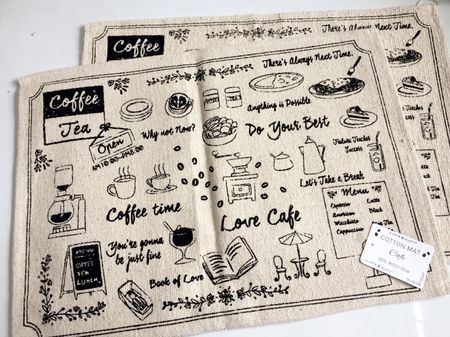 Coffee
There's Always Next Time
Coffee
There's Always Next Time
Tea
Open
Why not Now?
Anything is Possible
Do Your Best
Failure Teaches
Success
Let's Take a Break
Coffee time
Love Cafe
Menu
Espresso Latte
American Black
Macchiato
Cappuccino
You're gonna
be just fine
MENU
COFFEE
TEA
LUNCH
Book of Love
COTTON MAT
Cafe